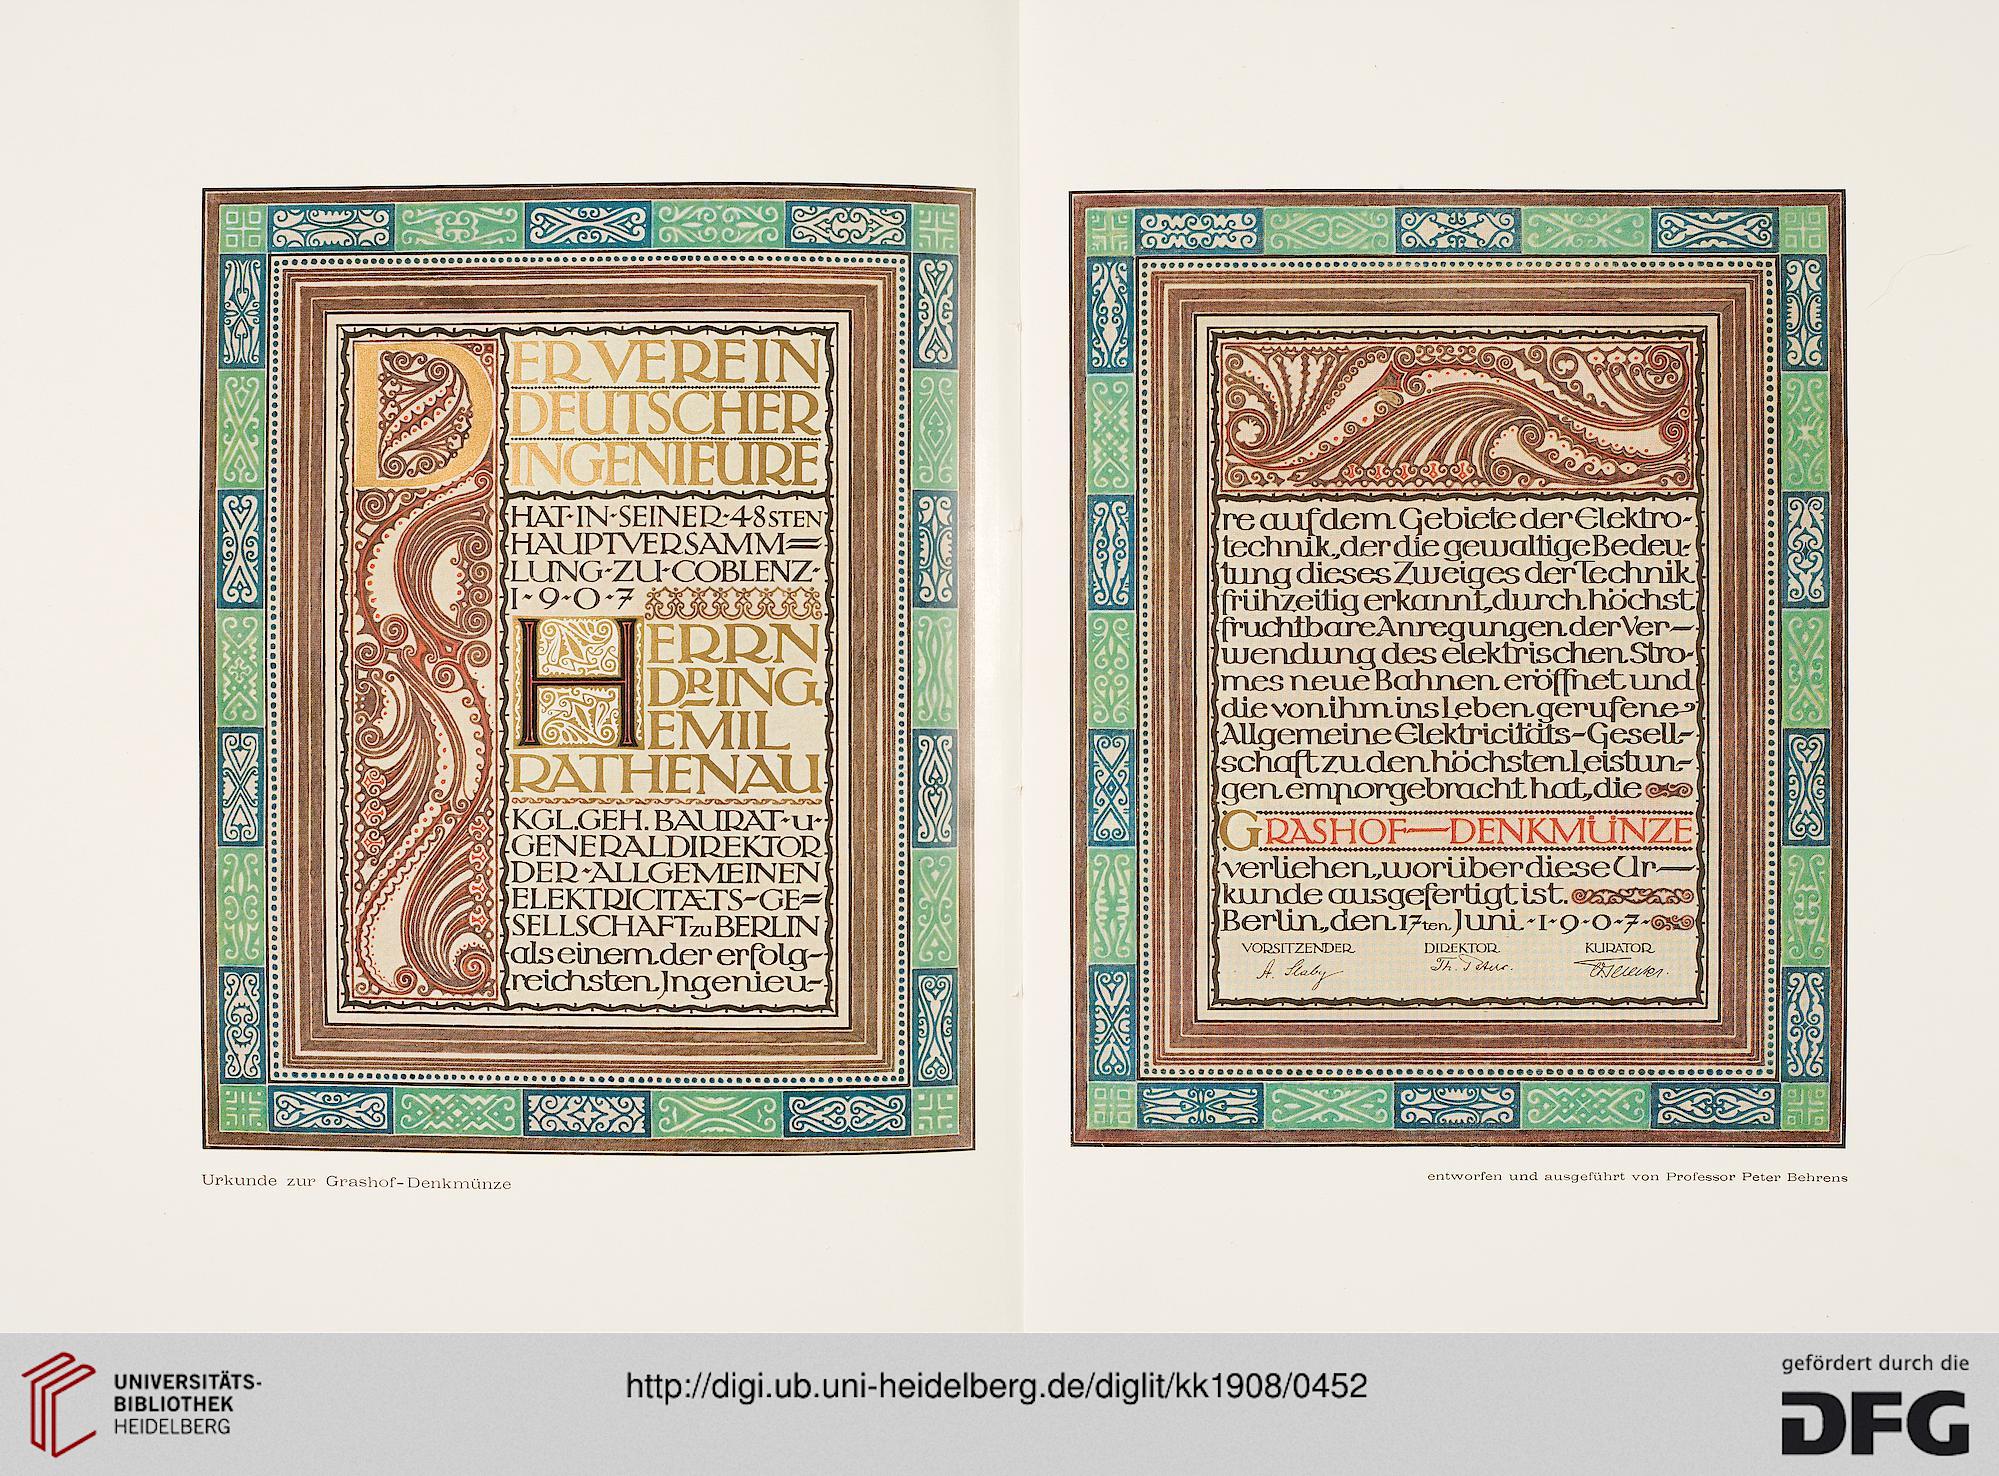 DER VEREIN
DEUTSCHER
INGENIEURE
HAT·IN·SEINER·48STEN
HAUPTVERSAMM=
LUNG·ZU·COBLENZ·
1·9·0·7
HERRN
DR ING.
EMIL
RATHENAU
KGL.GEH. BAURAT·u·
GENERALDIREKTOR
DER·ALLGEMEINEN
ELEKTRICITÆTS-GE=
SELLSCHAFT zu BERLIN
als einem der erfolg-
reichsten Jngenieu-
re auf dem Gebiete der Elektro-
technik, der die gewaltige Bedeu-
tung dieses Zweiges der Technik
frühzeitig erkannt, durch höchst
fruchtbare Anregungen der Ver-
wendung des elektrischen Stro-
mes neue Bahnen eröffnet und
die von ihm ins Leben gerufene
Allgemeine Elektricitäts-Gesell-
schaft zu den höchsten Leistun-
gen emporgebracht hat, die
GRASHOF—DENKMÜNZE
verliehen, worüber diese Ur-
kunde ausgefertigt ist.
Berlin, den 17ten Juni·1·9·0·7·
VORSITZENDER DIREKTOR KURATOR
A. Slaby Th. Peters.
Urkunde zur Grashof-Denkmünze
entworfen und ausgeführt von Professor Peter Behrens
UNIVERSITÄTS-
BIBLIOTHEK
HEIDELBERG
http://digi.ub.uni-heidelberg.de/diglit/kk1908/0452
gefördert durch die
DFG